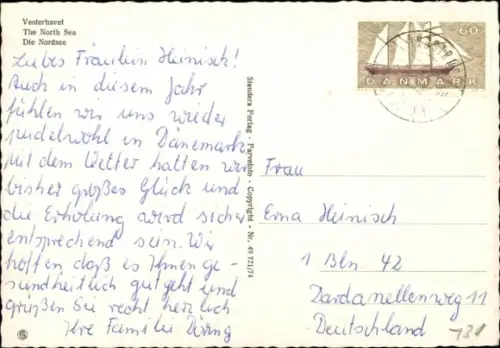 Vesterhavet
The North Sea
Die Nordsee
Liebes Fräulein Heinisch!
Auch in diesem Jahr
fühlen wir uns wieder
pudelwohl in Dänemark
Mit dem Wetter hatten wir
bisher großes Glück und
die Erholung wird sicher
entsprechend sein. Wir
hoffen daß es Ihnen ge-
sundheitlich gut geht und
grüßen Sie recht herzlich
Ihre Familie
Stenders Forlag - Farvefoto - Copyright - Nr. 49 721/74
60
DANMARK
Frau
Erna Heinisch
1 Bln 42
Dardanellenweg 11
Deutschland